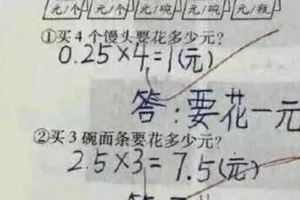 元/个 元/个 元/碗 元/碗 元/瓶
①买4个馒头要花多少元？
0.25×4=1(元)
答：要花一元
②买3碗面条要花多少元？
2.5×3=7.5(元)